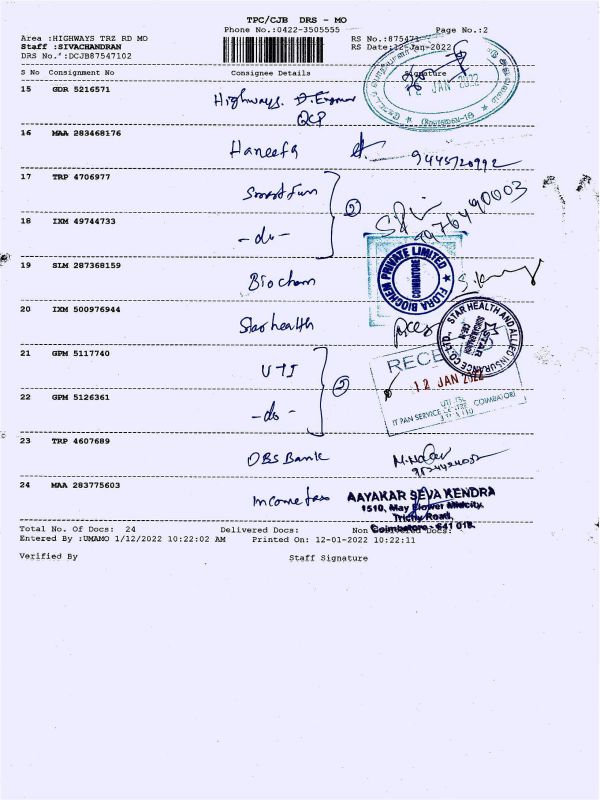 TPC/CJB DRS - MO
Phone No.:0422-3505555
Page No.:2
Area :HIGHWAYS TRZ RD MO
RS No.:875471
Staff :SIVACHANDRAN
RS Date:12-Jan-2022
DRS No.":DCJB87547102
S No Consignment No Consignee Details Signature
12 JAN 2022
15 GDR 5216571
Highways. D. Engineer
QCP
16 MAA 283468176
Haneefa
17 TRP 4706977
2
18 IXM 49744733
-do-
FLORA BIOCHEM PRIVATE LIMITED
COIMBATORE
19 SLM 287368159
Biochem
20 IXM 500976944
Star health
STAR HEALTH AND ALLIED INSURANCE CO. LTD.
STAR
21 GPM 5117740
UTI
2
12 JAN 2022
22 GPM 5126361
-do-
IT PAN SERVICE COIMBATORE
23 TRP 4607689
DBS Bank
24 MAA 283775603
Income tax
AAYAKAR SEVA KENDRA
1510, May Flower Midcity,
Trichy Road,
Coimbatore - 641 018.
Total No. Of Docs: 24 Delivered Docs: Non Delivered Docs:
Entered By :UMAMO 1/12/2022 10:22:02 AM Printed On: 12-01-2022 10:22:11
Verified By Staff Signature